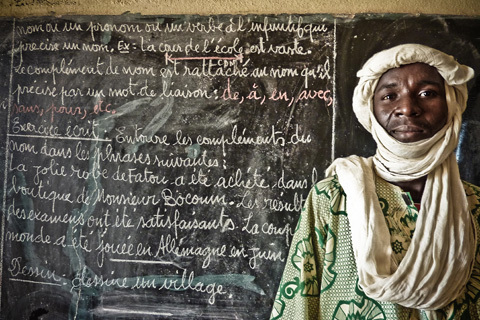 nom ou un pronom ou un verbe à l'infinitif qui
précise un nom. Ex: La cour de l'école est vaste.
CDN
Le complément de nom est rattaché au nom qu'il
précise par un mot de liaison: de, à, en, avec,
sans, pour, etc.
Exercice écrit. Entoure les compléments du
nom dans les phrases suivantes:
La jolie robe de Fatou a été acheté dans l
boutique de Monsieur Bocoum. Les result
des examens ont été satisfaisants. La coup
monde a été jouée en Allemagne en juin
Dessin: dessine un village.